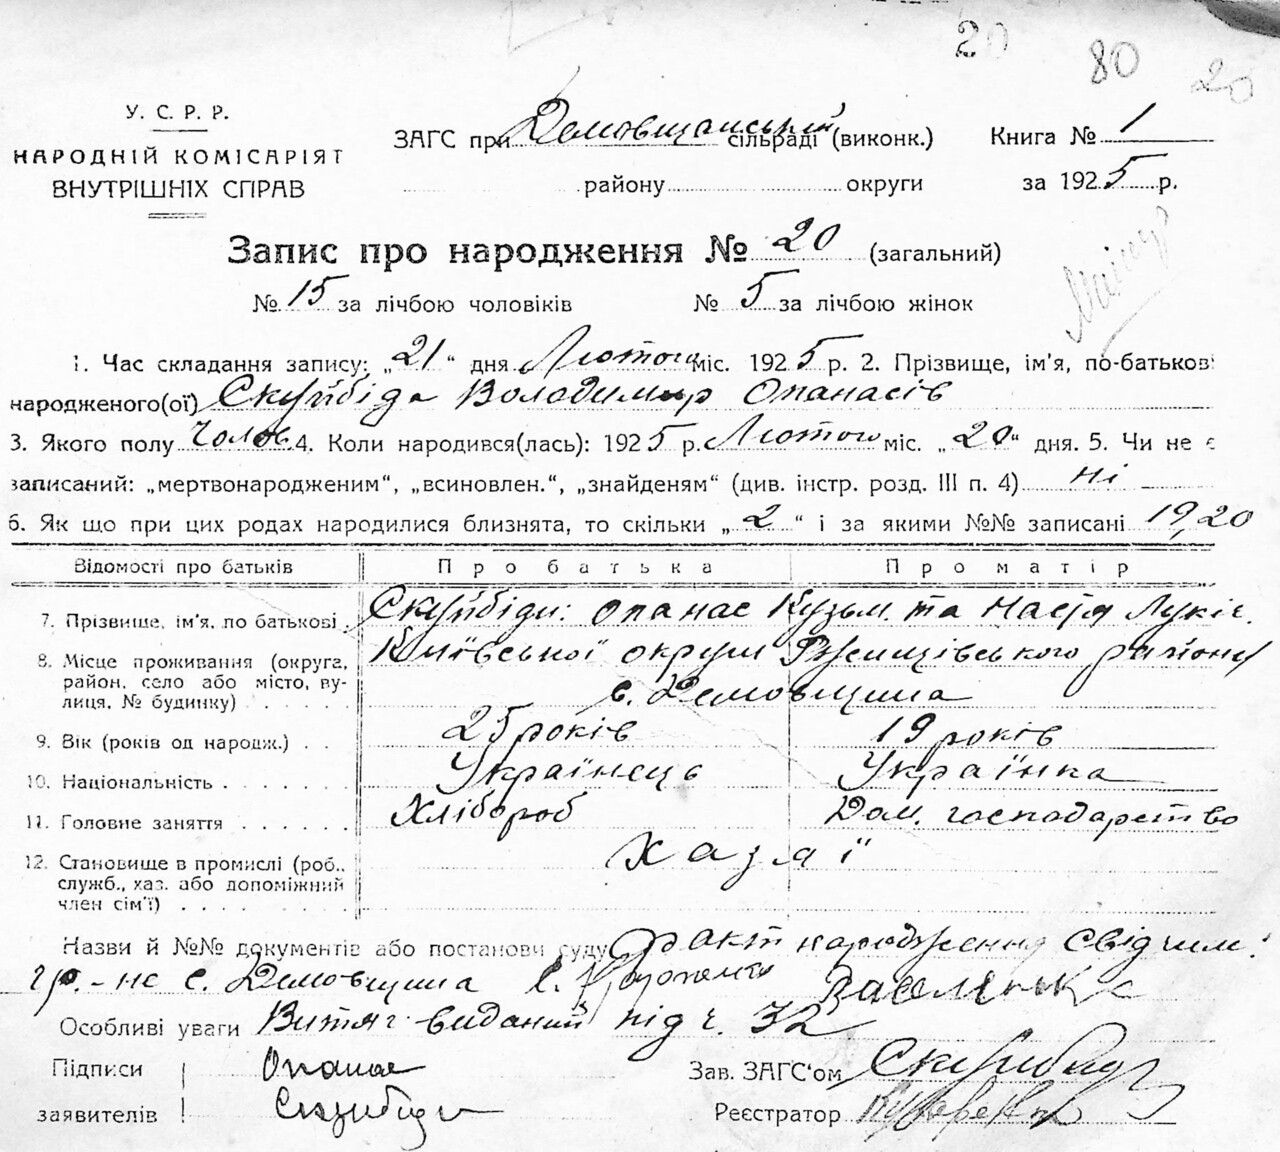 20 80 20
У. С. Р. Р.
НАРОДНІЙ КОМІСАРІЯТ
ВНУТРІШНІХ СПРАВ
ЗАГС при Демовщанській сільраді (виконк.)
району округи
Книга № 1
за 1925 р.
Запис про народження № 20 (загальний)
№ 15 за лічбою чоловіків № 5 за лічбою жінок
1. Час складання запису: „21“ дня Лютого міс. 1925 р. 2. Прізвище, ім'я, по-батькові
народженого(ої) Скуйбіда Володимир Опанасів
3. Якого полу Чолов. 4. Коли народився(лась): 1925 р. Лютого міс. „20“ дня. 5. Чи не є
записаний: „мертвонародженим“, „всиновлен.“, „знайденям“ (див. інстр. розд. III п. 4) ні
6. Як що при цих родах народилися близнята, то скільки „2“ і за якими №№ записані 19,20
Відомості про батьків Про батька Про матір
7. Прізвище, ім'я, по батькові Скуйбіди: Опанас Кузьм. та Настя Лукіє.
8. Місце проживання (округа, район, село або місто, вулиця, № будинку) Київської округи Ржищівського району
с. Демовщина
9. Вік (років од народж.) 25 років 19 років
10. Національність Українець Українка
11. Головне заняття Хлібороб Дом. господарство
12. Становище в промислі (роб., служб., хаз. або допоміжний член сім'ї) Хазяї
Назви й №№ документів або постанови суду Факт народження свідчим:
гр.-не с. Демовщина
Особливі уваги Витяг виданий під ч. 32
Підписи заявителів Опанас
Скуибіда
Зав. ЗАГС'ом Скуибида
Реєстратор